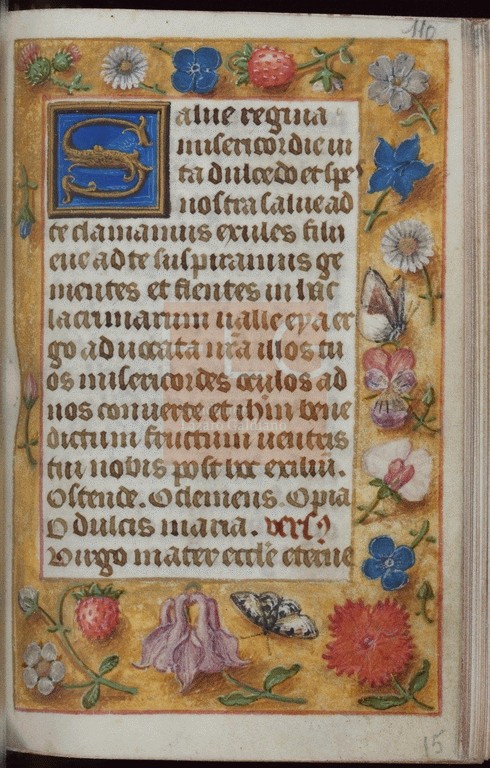 110
Salue regina
misericordie ui
ta dulcedo et spe
nostra salue ad
te clamamus exules filii
eue ad te suspiramus ge
mentes et flentes in hac
lacrimarum ualle eya er
go aduocata nrã illos tu
os misericordes oculos ad
nos conuerte et ihm bene
dictum fructum uentris
tui nobis post hoc exiliũ.
Ostende. O clemens. O pia
O dulcis maria. versꝯ
Uirgo mater eccl̃e eterne
Lázaro Galdiano
15